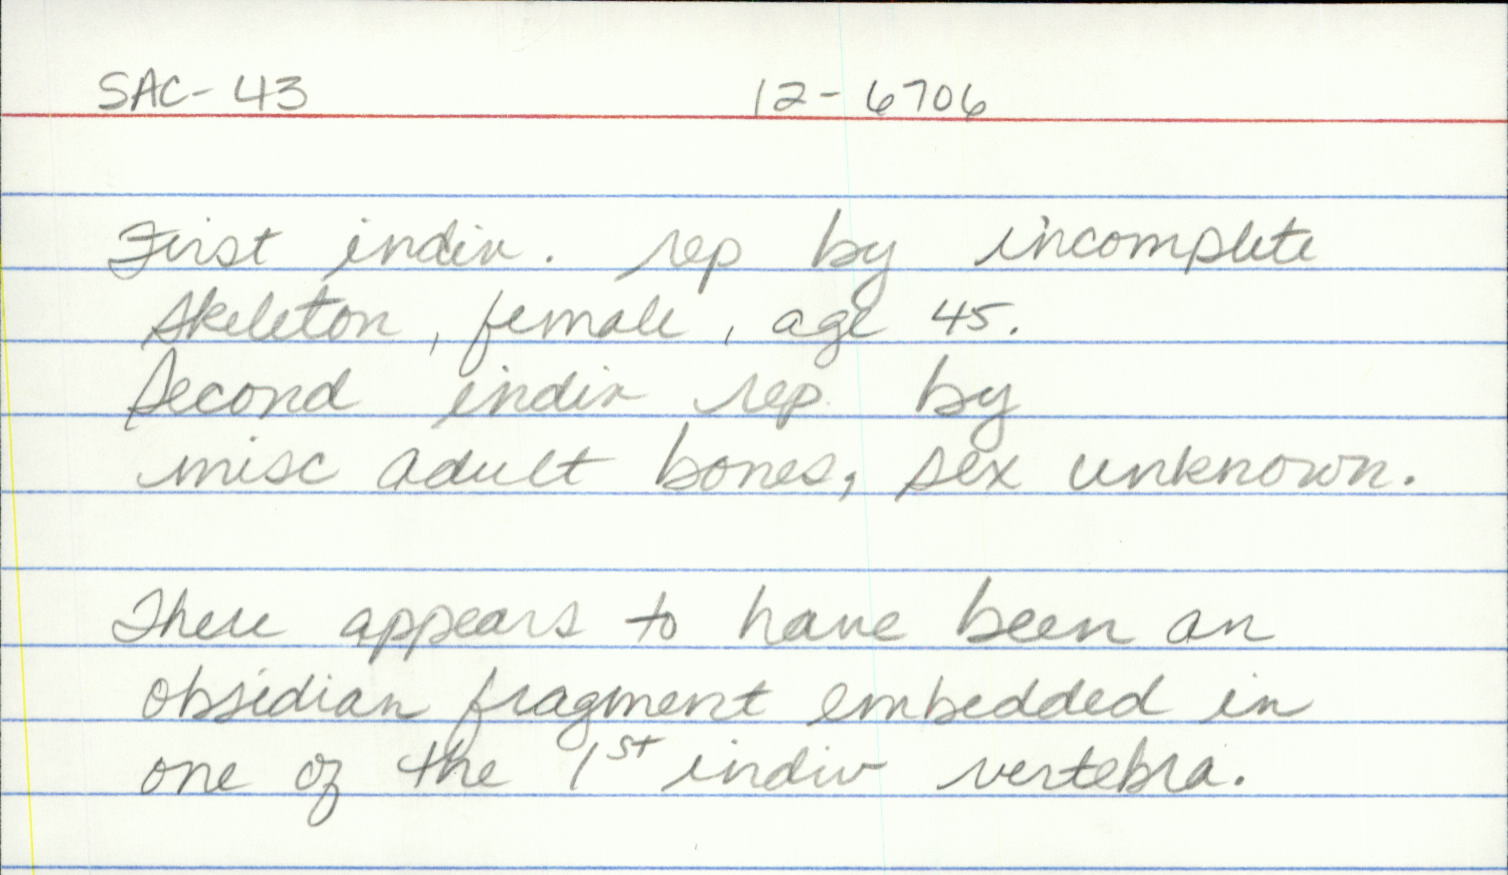 SAC-43 12-6706
First indiv. rep by incomplete
skeleton, female, age 45.
Second indiv rep. by
misc adult bones, sex unknown.
There appears to have been an
obsidian fragment embedded in
one of the 1st indiv vertebra.